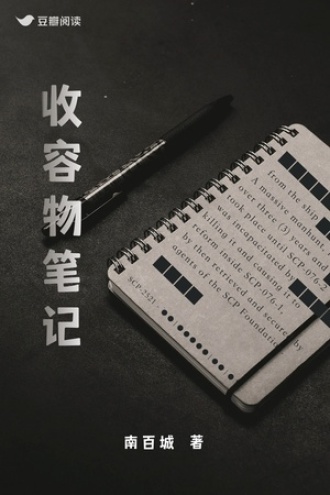 豆瓣阅读
收容物笔记
from the ship
A massive manhunt
over three (3) years and
took place until SCP-076-2
was incapacitated by
killing it and causing it to
reform inside SCP-076-1,
by then retrieved and secured by
agents of the SCP Foundation
SCP-2521:
南百城 著